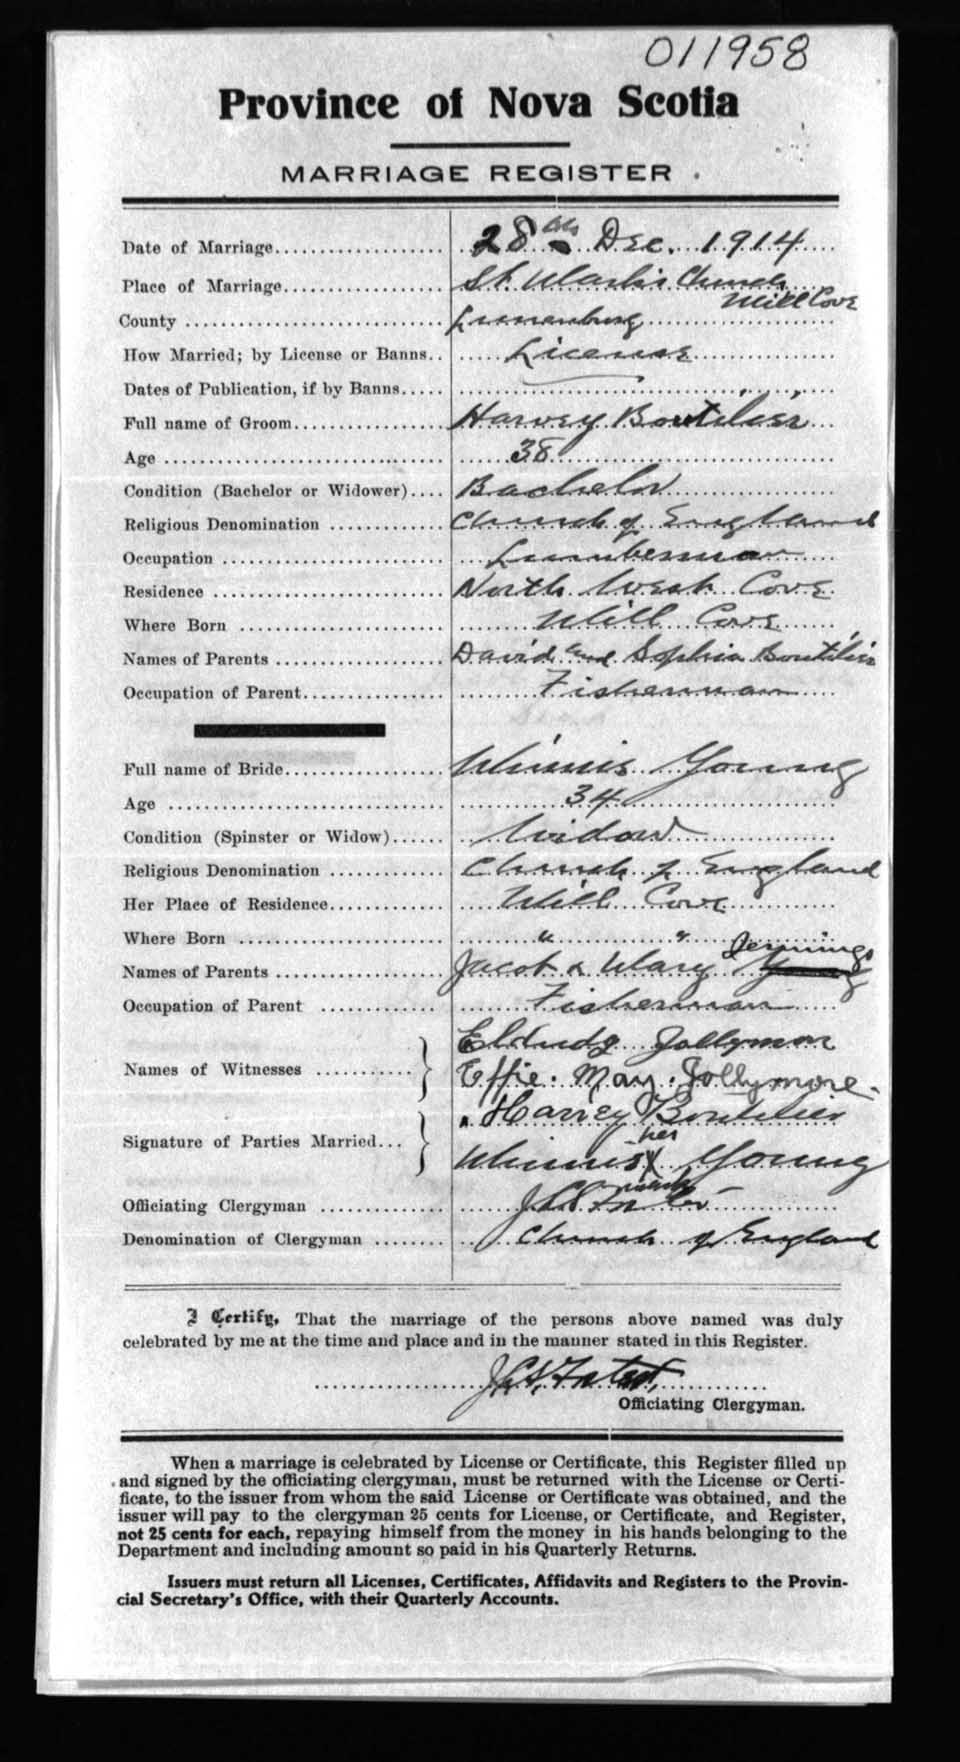 011958
Province of Nova Scotia
MARRIAGE REGISTER
Date of Marriage 28th Dec. 1914
Place of Marriage St. Mark's Church Mill Cove
County Lunenburg
How Married; by License or Banns License
Dates of Publication, if by Banns
Full name of Groom Harvey Boutilier
Age 38
Condition (Bachelor or Widower) Bachelor
Religious Denomination Church of England
Occupation Lumberman
Residence North West Cove
Where Born Mill Cove
Names of Parents David and Sophia Boutilier
Occupation of Parent Fisherman
Full name of Bride Minnie Young
Age 34
Condition (Spinster or Widow) Widow
Religious Denomination Church of England
Her Place of Residence Mill Cove
Where Born " "
Names of Parents Jacob & Mary Young Jennings
Occupation of Parent Fisherman
Names of Witnesses Jollymore
Effie May Jollymore
Signature of Parties Married Harvey Boutilier
Minnie her X mark Young
Officiating Clergyman
Denomination of Clergyman Church of England
I Certify, That the marriage of the persons above named was duly
celebrated by me at the time and place and in the manner stated in this Register.
Officiating Clergyman.
When a marriage is celebrated by License or Certificate, this Register filled up
and signed by the officiating clergyman, must be returned with the License or Certi-
ficate, to the issuer from whom the said License or Certificate was obtained, and the
issuer will pay to the clergyman 25 cents for License, or Certificate, and Register,
not 25 cents for each, repaying himself from the money in his hands belonging to the
Department and including amount so paid in his Quarterly Returns.
Issuers must return all Licenses, Certificates, Affidavits and Registers to the Provin-
cial Secretary's Office, with their Quarterly Accounts.